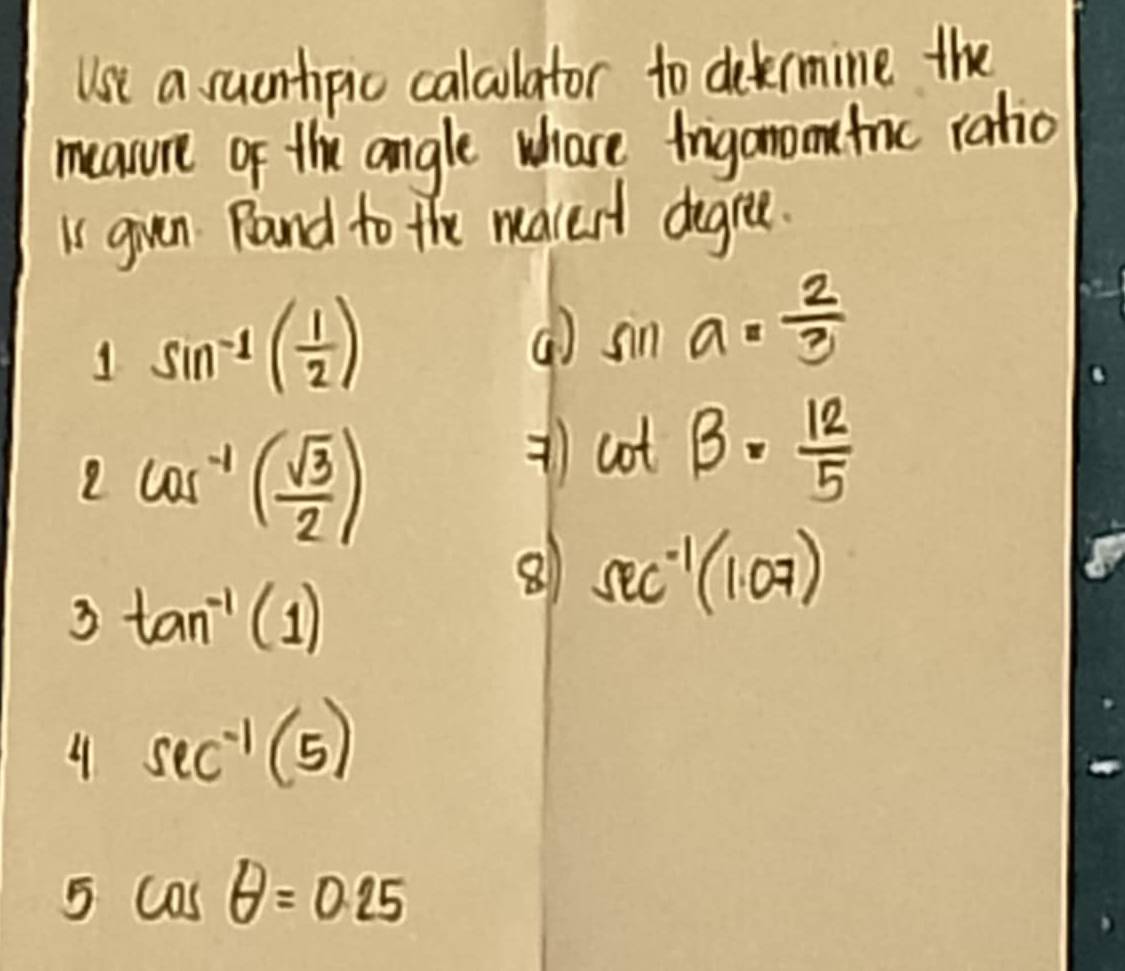 Use a scientific calculator to determine the
measure of the angle whose trigonometric ratio
is given. Round to the nearest degree.
1 sin⁻¹ (1/2)
2 cos⁻¹ (√3/2)
3 tan⁻¹ (1)
4 sec⁻¹ (5)
5 cos θ = 0.25
6) sin a = 2/3
7) cot β = 12/5
8) sec⁻¹ (1.07)